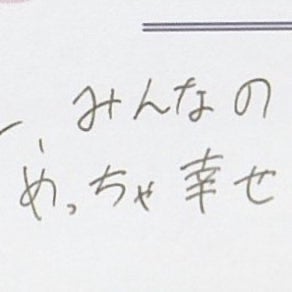 みんなの
めっちゃ幸せ